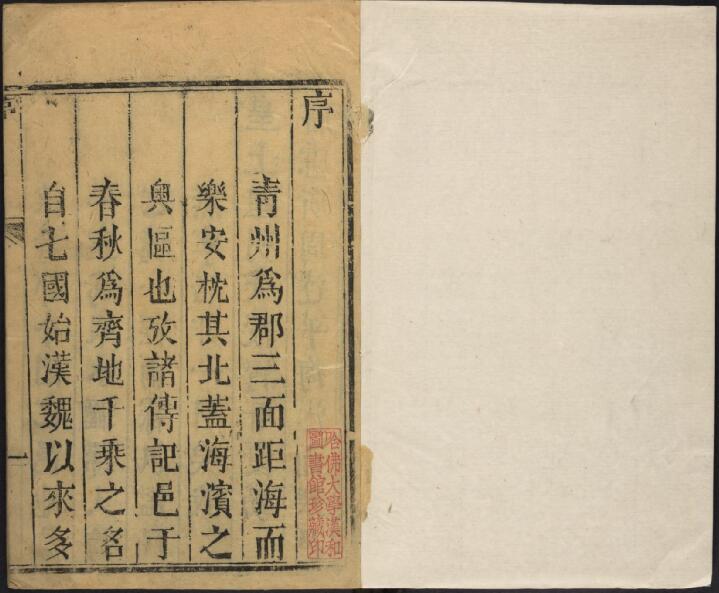 序
青州爲郡三面距海而
樂安枕其北蓋海濱之
奥區也攷諸傳記邑于
春秋爲齊地千乘之名
自七國始漢魏以來多
序
一
哈佛大學漢和
圖書館珍藏印